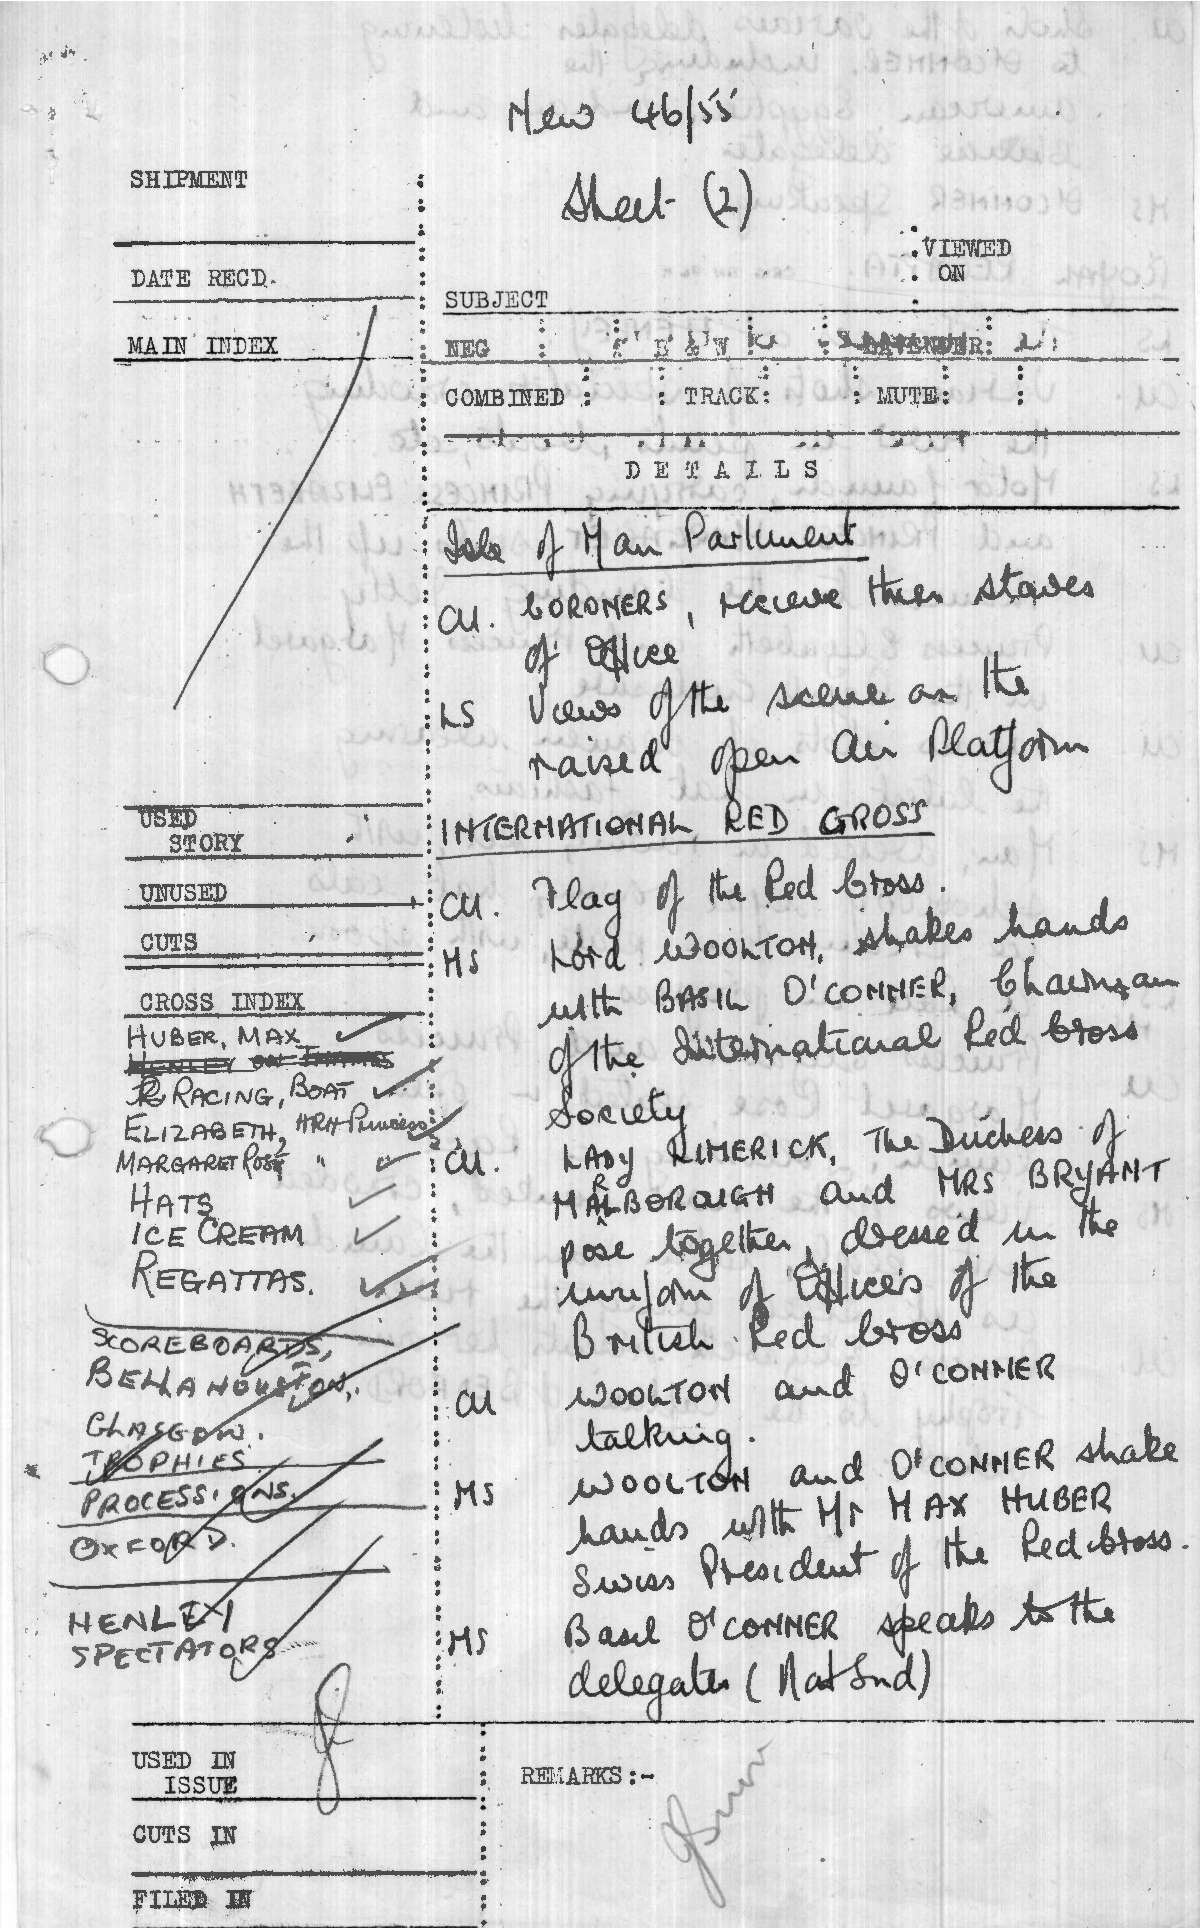 New 46/55
Sheet (2)
SHIPMENT
DATE RECD.
MAIN INDEX
VIEWED
ON
SUBJECT
NEG B & W LAVENDER:
COMBINED : : TRACK: : MUTE: :
DETAILS
Isle of Man Parliament
CU. CORONERS, receive their staves
of Office
LS Views of the scene on the
raised open Air Platform
INTERNATIONAL RED CROSS
CU. Flag of the Red Cross.
MS Lord WOOLTON, shakes hands
with BASIL O'CONNER, Chairman
of the International Red Cross
Society
CU. LADY LIMERICK, The Duchess of
MARLBOROUGH and MRS BRYANT
pose together, dressed in the
uniform of Officers of the
British Red Cross
CU WOOLTON and O'CONNER
talking.
MS WOOLTON and O'CONNER shake
hands with Mr MAX HUBER
Swiss President of the Red Cross.
MS Basil O'CONNER speaks to the
delegates (Nat Snd)
USED
STORY
UNUSED
CUTS
CROSS INDEX
HUBER, MAX
HENLEY ON THAMES
RACING, BOAT
ELIZABETH, HRH Princess
MARGARET ROSE "
HATS
ICE CREAM
REGATTAS.
SCOREBOARDS,
BELLAHOUSTON,
GLASGOW.
TROPHIES
PROCESSIONS.
OXFORD.
HENLEY
SPECTATORS
USED IN
ISSUE
REMARKS:-
CUTS IN
FILED IN